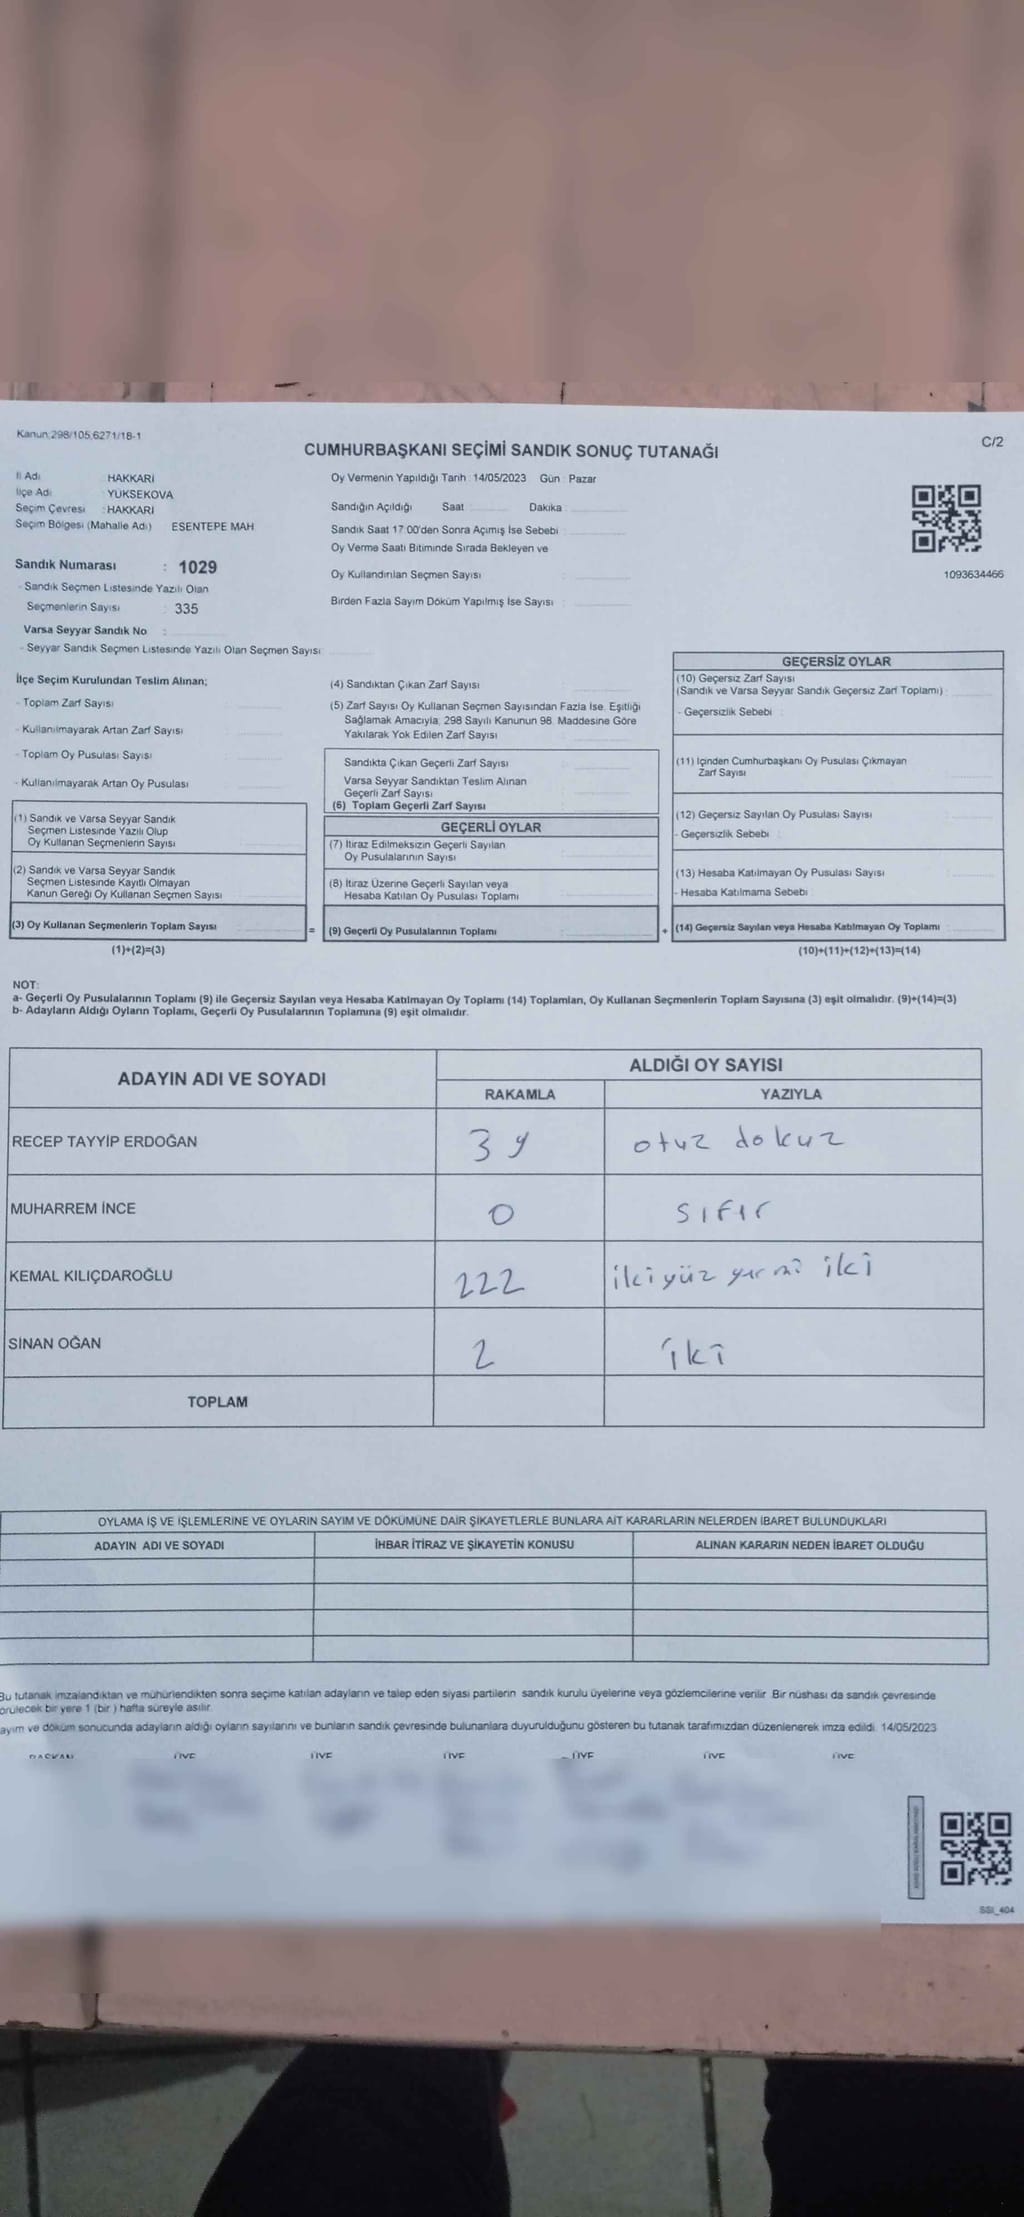 Kanun:298/105,6271/18-1
C/2
CUMHURBAŞKANI SEÇİMİ SANDIK SONUÇ TUTANAĞI
İl Adı : HAKKARİ
İlçe Adı : YÜKSEKOVA
Seçim Çevresi : HAKKARİ
Seçim Bölgesi (Mahalle Adı) ESENTEPE MAH
Sandık Numarası : 1029
- Sandık Seçmen Listesinde Yazılı Olan
Seçmenlerin Sayısı : 335
Varsa Seyyar Sandık No :
- Seyyar Sandık Seçmen Listesinde Yazılı Olan Seçmen Sayısı
Oy Vermenin Yapıldığı Tarih : 14/05/2023 Gün : Pazar
Sandığın Açıldığı Saat Dakika
Sandık Saat 17:00'den Sonra Açımış İse Sebebi :
Oy Verme Saati Bitiminde Sırada Bekleyen ve
Oy Kullandırılan Seçmen Sayısı :
Birden Fazla Sayım Döküm Yapılmış İse Sayısı :
1093634466
İlçe Seçim Kurulundan Teslim Alınan;
- Toplam Zarf Sayısı
- Kullanılmayarak Artan Zarf Sayısı
- Toplam Oy Pusulası Sayısı
- Kullanılmayarak Artan Oy Pusulası
(1) Sandık ve Varsa Seyyar Sandık
Seçmen Listesinde Yazılı Olup
Oy Kullanan Seçmenlerin Sayısı
(2) Sandık ve Varsa Seyyar Sandık
Seçmen Listesinde Kayıtlı Olmayan
Kanun Gereği Oy Kullanan Seçmen Sayısı
(3) Oy Kullanan Seçmenlerin Toplam Sayısı
(1)+(2)=(3)
=
(4) Sandıktan Çıkan Zarf Sayısı
(5) Zarf Sayısı Oy Kullanan Seçmen Sayısından Fazla İse, Eşitliği
Sağlamak Amacıyla, 298 Sayılı Kanunun 98. Maddesine Göre
Yakılarak Yok Edilen Zarf Sayısı
Sandıkta Çıkan Geçerli Zarf Sayısı
Varsa Seyyar Sandıktan Teslim Alınan
Geçerli Zarf Sayısı
(6) Toplam Geçerli Zarf Sayısı
GEÇERLİ OYLAR
(7) İtiraz Edilmeksizin Geçerli Sayılan
Oy Pusulalarının Sayısı
(8) İtiraz Üzerine Geçerli Sayılan veya
Hesaba Katılan Oy Pusulası Toplamı
(9) Geçerli Oy Pusulalarının Toplamı
+
GEÇERSİZ OYLAR
(10) Geçersiz Zarf Sayısı
(Sandık ve Varsa Seyyar Sandık Geçersiz Zarf Toplamı)
- Geçersizlik Sebebi :
(11) İçinden Cumhurbaşkanı Oy Pusulası Çıkmayan
Zarf Sayısı
(12) Geçersiz Sayılan Oy Pusulası Sayısı
- Geçersizlik Sebebi :
(13) Hesaba Katılmayan Oy Pusulası Sayısı
- Hesaba Katılmama Sebebi :
(14) Geçersiz Sayılan veya Hesaba Katılmayan Oy Toplamı
(10)+(11)+(12)+(13)=(14)
NOT:
a- Geçerli Oy Pusulalarının Toplamı (9) ile Geçersiz Sayılan veya Hesaba Katılmayan Oy Toplamı (14) Toplamları, Oy Kullanan Seçmenlerin Toplam Sayısına (3) eşit olmalıdır. (9)+(14)=(3)
b- Adayların Aldığı Oyların Toplamı, Geçerli Oy Pusulalarının Toplamına (9) eşit olmalıdır.
ADAYIN ADI VE SOYADI ALDIĞI OY SAYISI
RAKAMLA YAZIYLA
RECEP TAYYİP ERDOĞAN 39 otuz dokuz
MUHARREM İNCE 0 sıfır
KEMAL KILIÇDAROĞLU 222 ikiyüz yirmi iki
SİNAN OĞAN 2 iki
TOPLAM
OYLAMA İŞ VE İŞLEMLERİNE VE OYLARIN SAYIM VE DÖKÜMÜNE DAİR ŞİKAYETLERLE BUNLARA AİT KARARLARIN NELERDEN İBARET BULUNDUKLARI
ADAYIN ADI VE SOYADI İHBAR İTİRAZ VE ŞİKAYETİN KONUSU ALINAN KARARIN NEDEN İBARET OLDUĞU
Bu tutanak imzalandıktan ve mühürlendikten sonra seçime katılan adayların ve talep eden siyasi partilerin sandık kurulu üyelerine veya gözlemcilerine verilir. Bir nüshası da sandık çevresinde
örülecek bir yere 1 (bir) hafta süreyle asılır.
ayım ve döküm sonucunda adayların aldığı oyların sayılarını ve bunların sandık çevresinde bulunanlara duyurulduğunu gösteren bu tutanak tarafımızdan düzenlenerek imza edildi. 14/05/2023
BAŞKAN ÜYE ÜYE ÜYE ÜYE ÜYE ÜYE
SSI_404